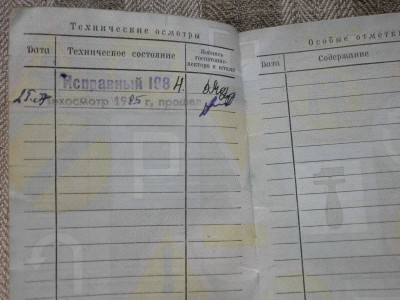 Технические осмотры
Дата
Техническое состояние
Подпись госавтоинс-
пектора и штамп
Исправный 198 4.
Техосмотр 1985 г. прошел
Особые отметки
Дата
Содержание